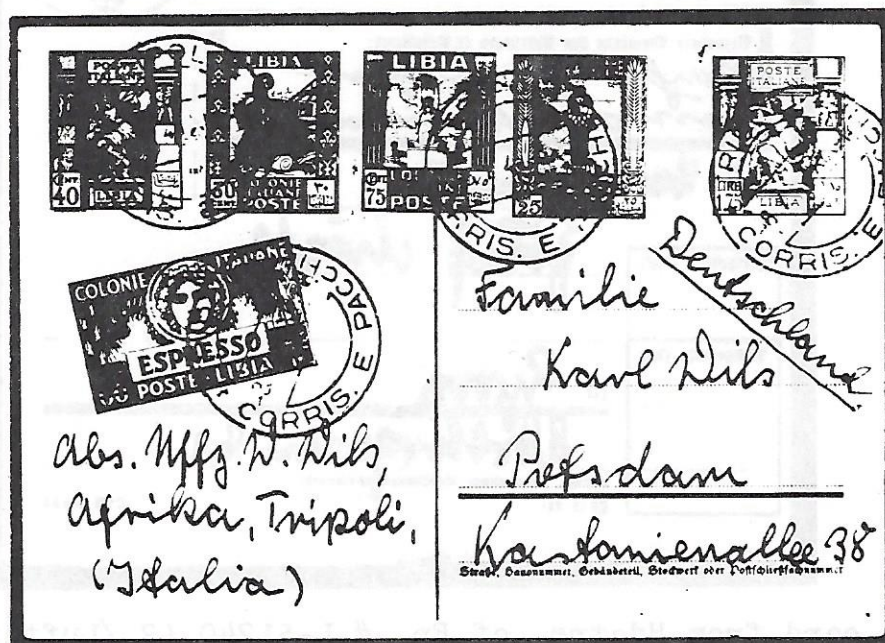 POSTE
ITALIANE
CENT
40
LIBIA
LIBIA
30
CENT
COLONIE
ITALIANE
POSTE
٣٠
LIBIA
CENT
75
POSTE
25
POSTE
ITALIANE
LIRE
1,75
LIBIA
CORRIS. E
CORRIS. E P
COLONIE ITALIANE
ESPRESSO
POSTE · LIBIA
CORRIS. E PACCHI
Deutschland
Familie
Karl Dils
Potsdam
Kastanienallee 38
Straße, Hausnummer, Gebäudeteil, Stockwerk oder Postschließfachnummer
Abs. Uffz. W. Dils,
Afrika, Tripoli,
(Italia)